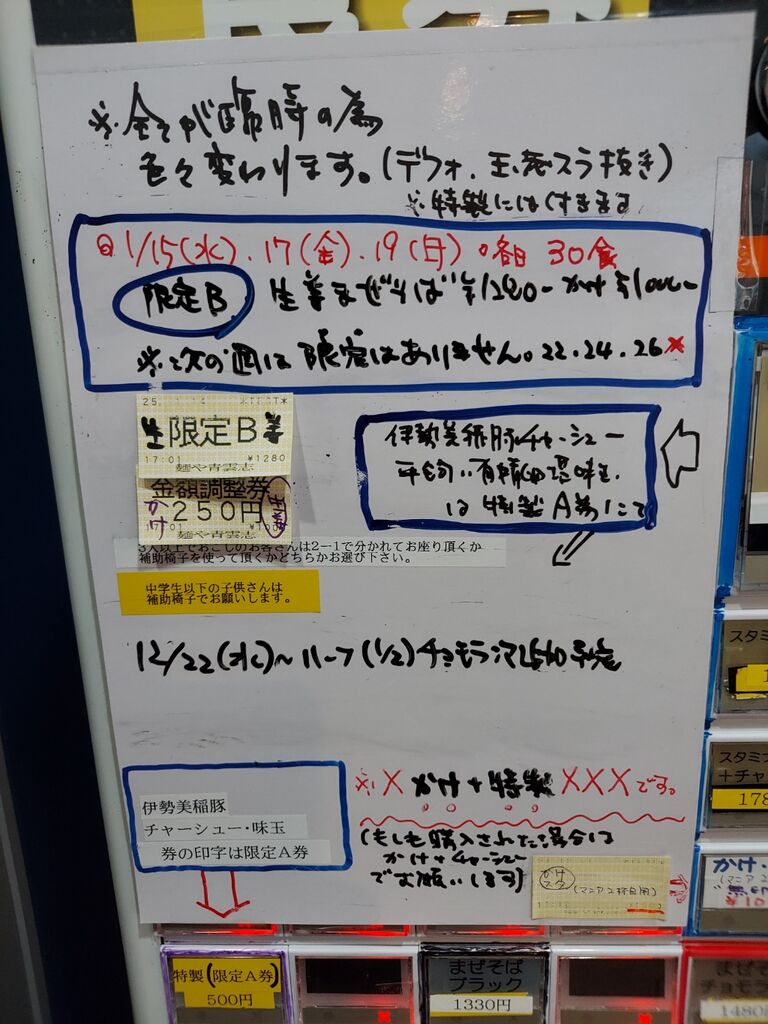 ※全てが臨時の為
色々変わります。(デフォ、玉ねスラ抜き)
※特製にはつきます
◎1/15(水).17(金).19(日)。各日30食
限定B 生姜まぜそば ¥1280- かけ
※次の週は限定はありません。22.24.26×
生 限定B 姜
17:01 ¥1280
麺や青雲志
伊勢美稲豚チャーシュー
は特製A券にて
金額調整券
かけ 250円
麺や青雲志
3人以上でおこしのお客さんは2−1で分かれてお座り頂くか
補助椅子を使って頂くかどちらかお選び下さい。
中学生以下の子供さんは
補助椅子でお願いします。
12/22(水)~ハーフ(1/2)チョモランマ 予定
伊勢美稲豚
チャーシュー・味玉
券の印字は限定A券
※×かけ+特製×××です。
(もしも購入された場合は
かけ+チャーシュー
でお願いします)
かけ
(マニア2杯目用)
スタミ
スタミナ
+チャ
178
かけ・
特製(限定A券)
500円
まぜそば
ブラック
1330円
まぜそば
チョモラ
1480